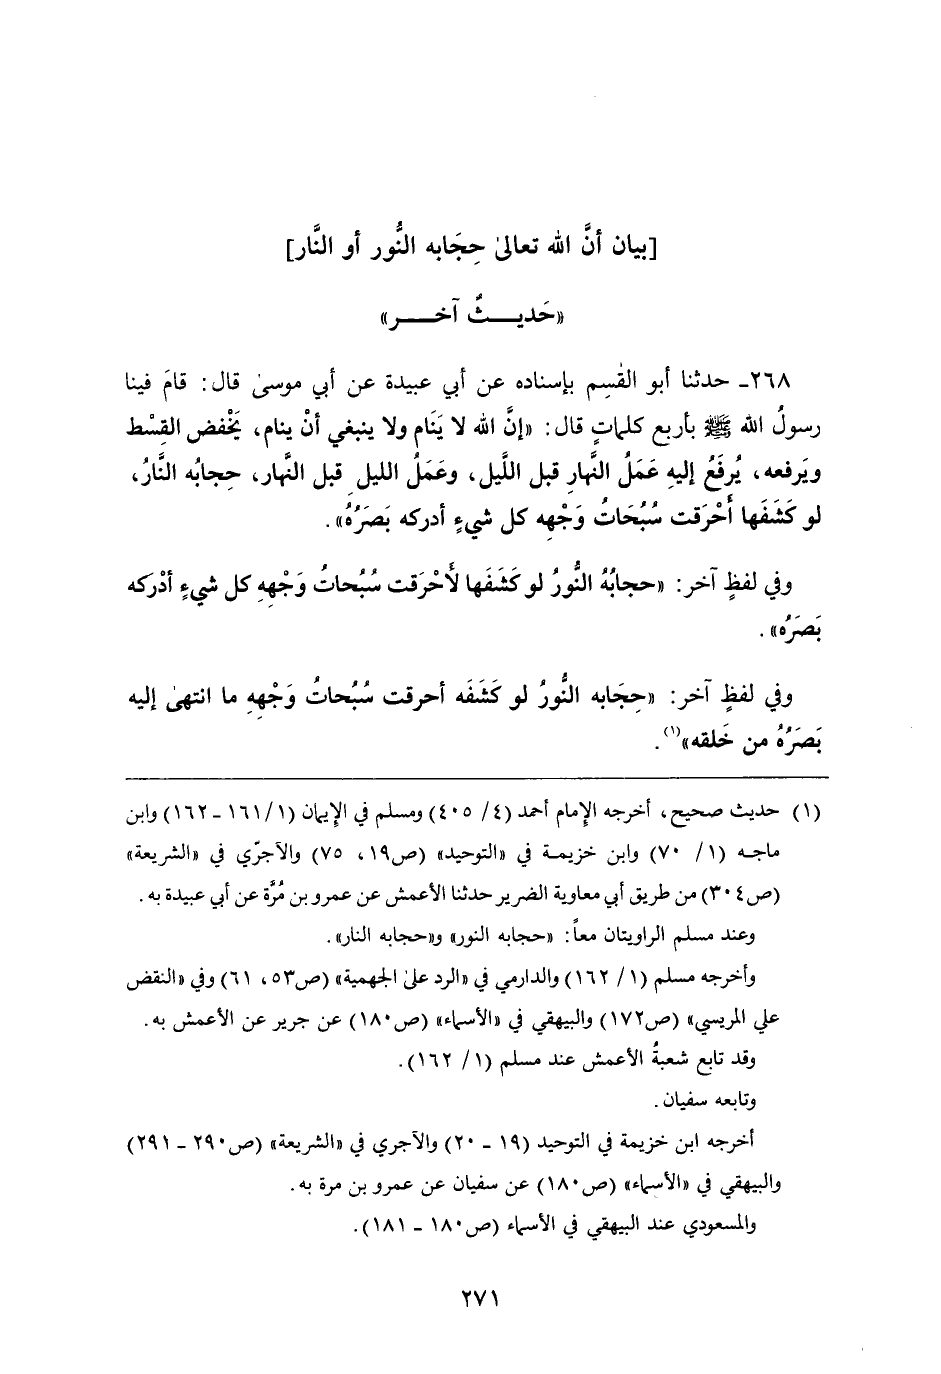 [بيان أنَّ الله تعالىٰ حِجَابه النُّور أو النَّار]
«حَديــثٌ آخــر»
٢٦٨ـ حدثنا أبو القٰسِم بإسناده عن أبي عبيدة عن أبي موسىٰ قال: قامَ فينا
رسولُ الله ﷺ بأربع كلماتٍ قال: «إنَّ الله لا يَنَام ولا ينبغي أنْ ينام، يَخْفض القِسْط
ويَرفعه، يُرفَعُ إليه عَمَلُ النَّهارِ قبل اللَّيل، وعَمَلُ الليل قبل النَّهار، حِجابُه النَّارُ،
لو كَشَفَها أَحْرَقت سُبُحَاتُ وَجْهِه كل شيءٍ أدركه بَصَرُهُ».
وفي لفظٍ آخر: «حجابُهُ النُّورُ لو كَشَفَها لأَحْرَقت سُبُحاتُ وَجْهِهِ كل شيءٍ أدْرَكه
بَصَرُه».
وفي لفظٍ آخر: «حِجَابه النُّورُ لو كَشَفَه أحرقت سُبُحاتُ وَجْهِهِ ما انتهىٰ إليه
بَصَرُهُ من خَلقه»(١).
(١) حديث صحيح، أخرجه الإمام أحمد (٤/ ٤٠٥) ومسلم في الإيمان (١/ ١٦١ ـ ١٦٢) وابن
ماجه (١/ ٧٠) وابن خزيمة في «التوحيد» (ص١٩، ٧٥) والآجرّي في «الشريعة»
(ص٣٠٤) من طريق أبي معاوية الضرير حدثنا الأعمش عن عمرو بن مُرَّة عن أبي عبيدة به.
وعند مسلم الراويتان معاً: «حجابه النور» و«حجابه النار».
وأخرجه مسلم (١/ ١٦٢) والدارمي في «الرد علىٰ الجهمية» (ص٥٣، ٦١) وفي «النقض
علي المريسي» (ص١٧٢) والبيهقي في «الأسماء» (ص١٨٠) عن جرير عن الأعمش به.
وقد تابع شعبةُ الأعمش عند مسلم (١/ ١٦٢).
وتابعه سفيان.
أخرجه ابن خزيمة في التوحيد (١٩ ـ ٢٠) والآجري في «الشريعة» (ص٢٩٠ ـ ٢٩١)
والبيهقي في «الأسماء» (ص١٨٠) عن سفيان عن عمرو بن مرة به.
والمسعودي عند البيهقي في الأسماء (ص١٨٠ ـ ١٨١).
٢٧١